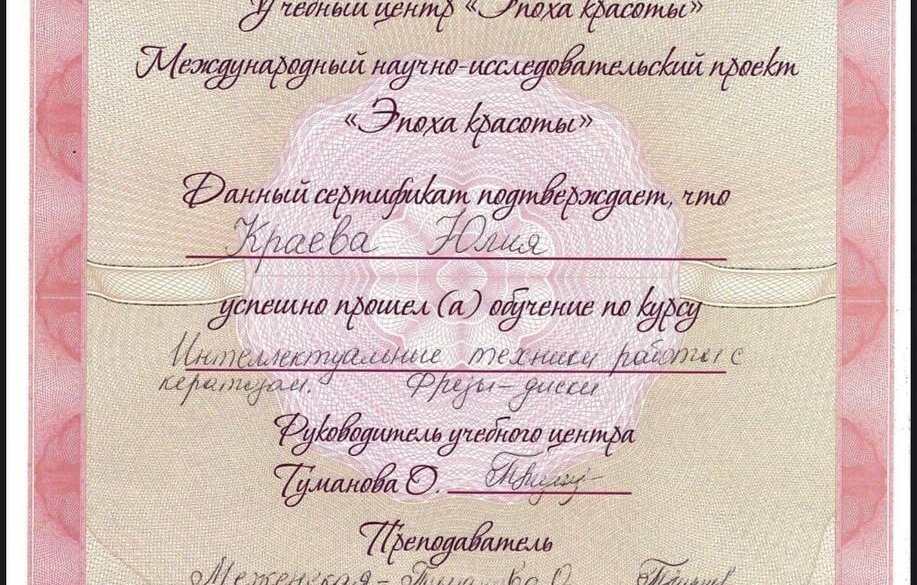 Учебный центр «Эпоха красоты»
Международный научно-исследовательский проект
«Эпоха красоты»
Данный сертификат подтверждает, что
Краева Юлия
успешно прошел (а) обучение по курсу
Интеллектуальные техники работы с
кератозом. Фрезы-диски
Руководитель учебного центра
Туманова О.
Преподаватель
Меженская-